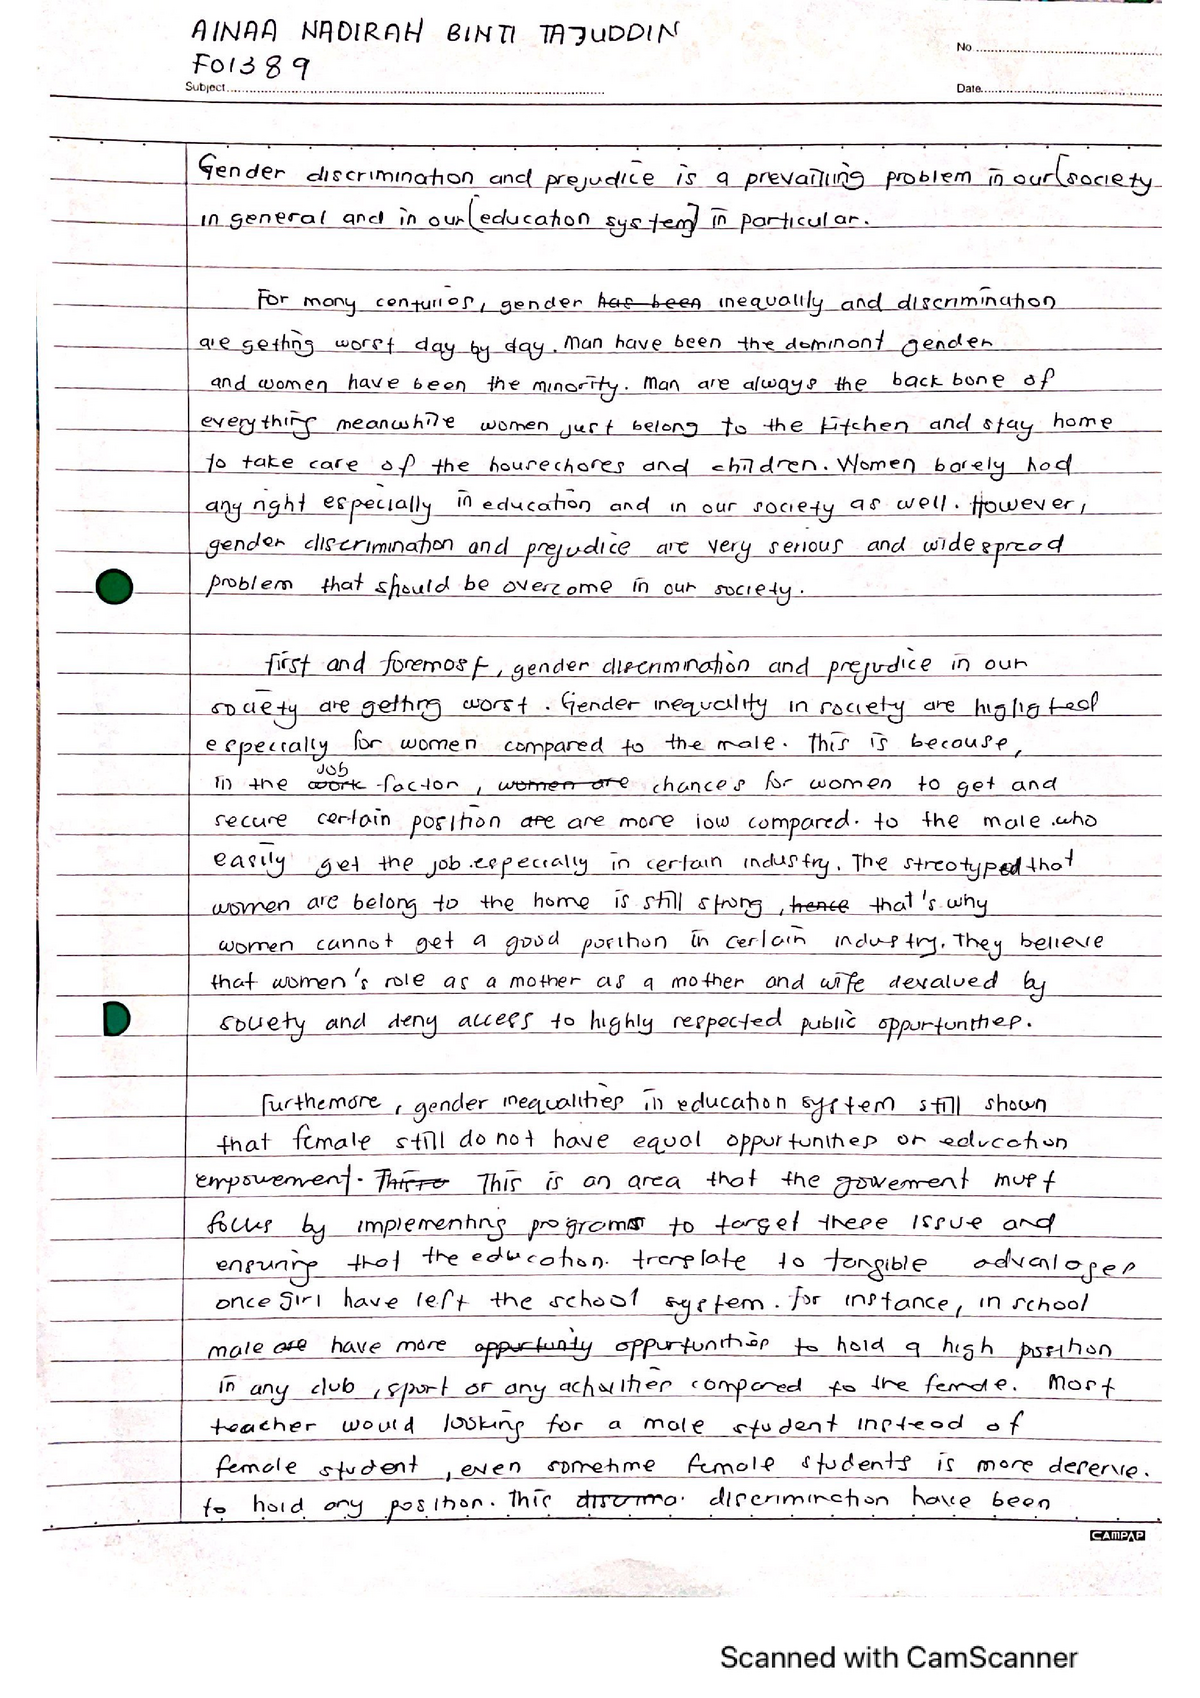 AINAA NADIRAH BINTI TAJUDDIN
F01389
No
Subject
Date
Gender discrimination and prejudice is a prevailing problem in our [society
in general and in our [education system] in particular.
For many centuries, gender has been inequality and discrimination
are getting worst day by day. Man have been the dominant gender
and women have been the minority. Man are always the back bone of
everything meanwhile women just belong to the kitchen and stay home
to take care of the housechores and children. Women barely had
any right especially in education and in our society as well. However,
gender discrimination and prejudice are very serious and widespread
problem that should be overcome in our society.
First and foremost, gender discrimination and prejudice in our
society are getting worst. Gender inequality in society are higligted
especially for women compared to the male. This is because,
job
in the work factor, women are chances for women to get and
secure certain position are are more low compared. to the male who
easily get the job especially in certain industry. The streotyped that
women are belong to the home is still strong, hence that's why
women cannot get a good position in certain industry. They believe
that women's role as a mother as a mother and wife devalued by
society and deny access to highly respected public oppurtunities.
Furthemore, gender inequalities in education system still shown
that female still do not have equal oppurtunities or education
empowement. This is an area that the gowement must
focus by implementing programs to target these issue and
ensuring that the education. translate to tangible advantages
once girl have left the school system. For instance, in school
male are have more oppurtunity oppurtunities to hold a high position
in any club, sport or any activities compared to the female. Most
teacher would looking for a male student instead of
female student, even sometime female students is more deserve.
to hold any position. This discrima. discrimination have been
CAMPAP
Scanned with CamScanner